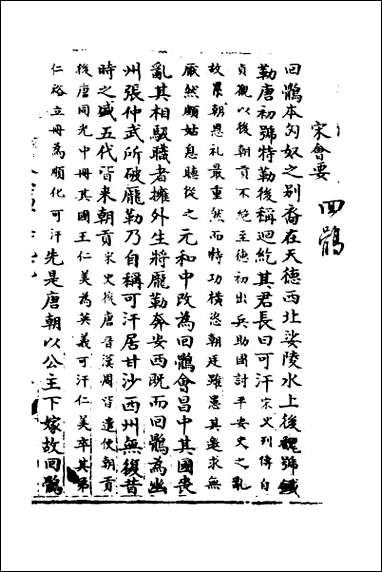 宋會要
回鶻
回鶻本匈奴之别裔在天德西北娑陵水上後魏號鐵
勒唐初號特勒後稱迴紇其君長曰可汗宋史列傳自
貞觀以後朝貢不絶至德初出兵助國討平安史之亂
故累朝恩礼最重然而特功横恣朝廷雖患其邀求無
厭然頗姑息聴從之元和中改為回鶻會昌中其國喪
亂其相馺職者擁外生將龐勒奔安西既而回鶻為幽
州張仲武所破龐勒乃自稱可汗居甘沙西州無復昔
時之盛五代皆来朝貢宋史後唐晉漢周皆遣使朝貢
後唐同光中冊其國王仁美為英義可汗仁美卒其弟
仁裕立冊為順化可汗先是唐朝以公主下嫁故回鶻